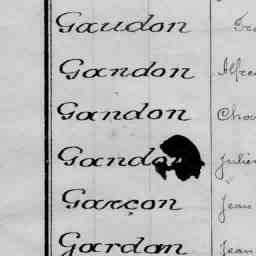 Gaudon
Gandon Alfre
Gandon
Gando Julien
Garçon Jean
Gardon Jean